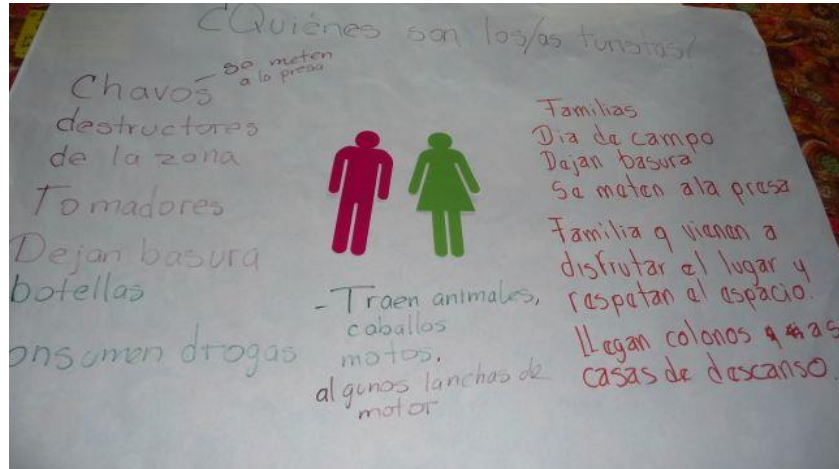 ¿Quiénes son los/as turistas?
Chavos – se meten
a la presa
destructores
de la zona
Tomadores
Dejan basura
botellas
onsumen drogas
- Traen animales,
caballos
motos,
algunos lanchas de
motor
Familias
Dia de campo
Dejan basura
Se meten ala presa
Familia q vienen a
disfrutar el lugar y
respetan el espacio.
Llegan colonos
casas de descanso.